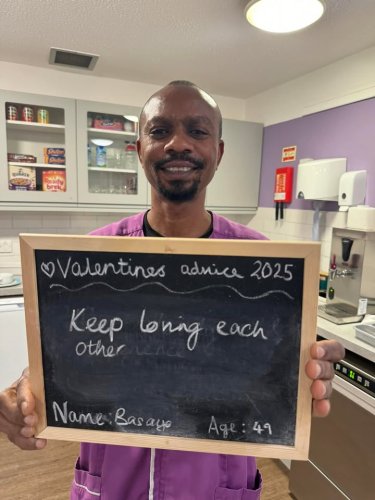 ♡Valentines advice 2025
Keep loving each
other
Name: Basayo Age: 49